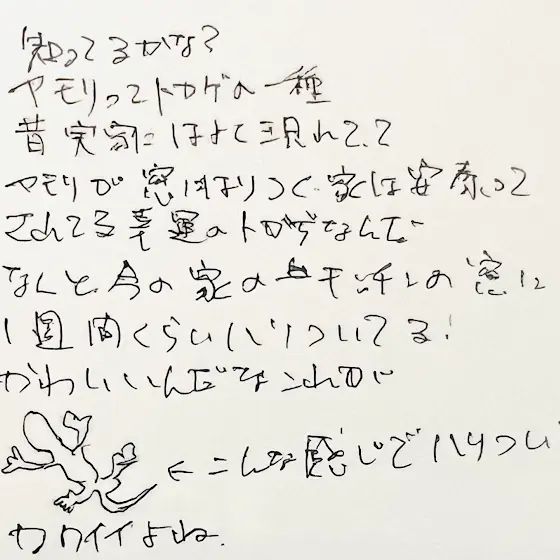 知ってるかな?
ヤモリってトカゲの一種
昔実家にはよく現れてて
ヤモリが窓にはりつく家は安泰って
されてる幸運のトカゲなんだ
なんと今の家の の窓に
1週間くらいハリついてる!
かわいいんだなこれが
←こんな感じでハリつい
カワイイよね.